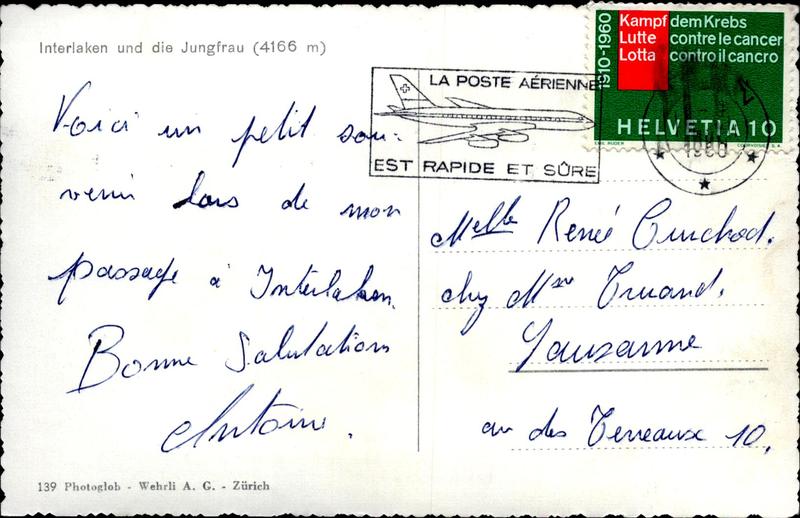 Interlaken und die Jungfrau (4166 m)
Voici un petit sou-
venir lors de mon
passage à Interlaken.
Bonne Salutations
Antoine.
139 Photoglob - Wehrli A. G. - Zürich
LA POSTE AÉRIENNE
EST RAPIDE ET SÛRE
1910-1960
Kampf dem Krebs
Lutte contre le cancer
Lotta contro il cancro
HELVETIA 10
COURVOISIER S.A.
1960
Melle René Cuchod.
chez Mme
Lausanne
av des Terreaux 10.